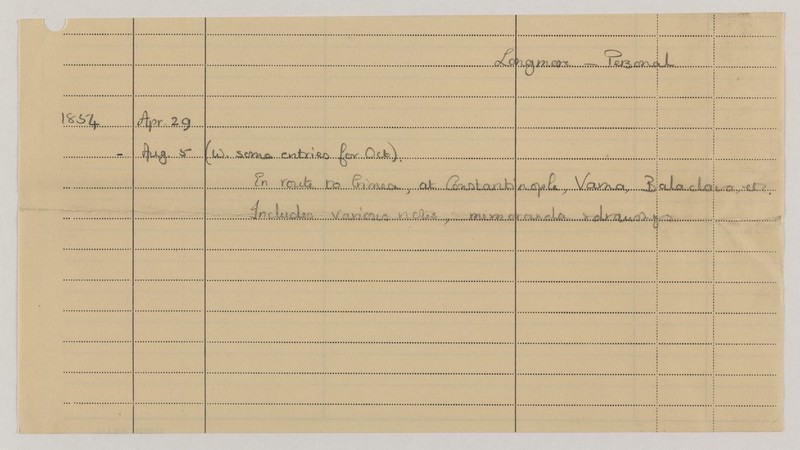 Longmore — Personal
1854 Apr 29
- Aug. 5 (w. some entries for Oct).
En route to Crimea, at Constantinople, Varna, Balaclava, etc.
Includes various notes, memoranda & drawings